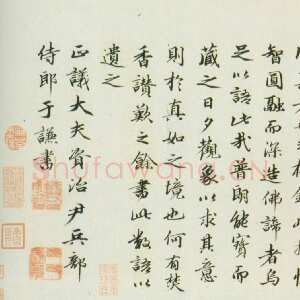 智圓融而深造佛諦者烏
足以語此我普朗能寶而
藏之日夕觀象以求其意
則於真如之境也何有焚
香讚歎之餘書此數語以
遺之
正議大夫資治尹兵部
侍郎于謙書
Shufawang.CN